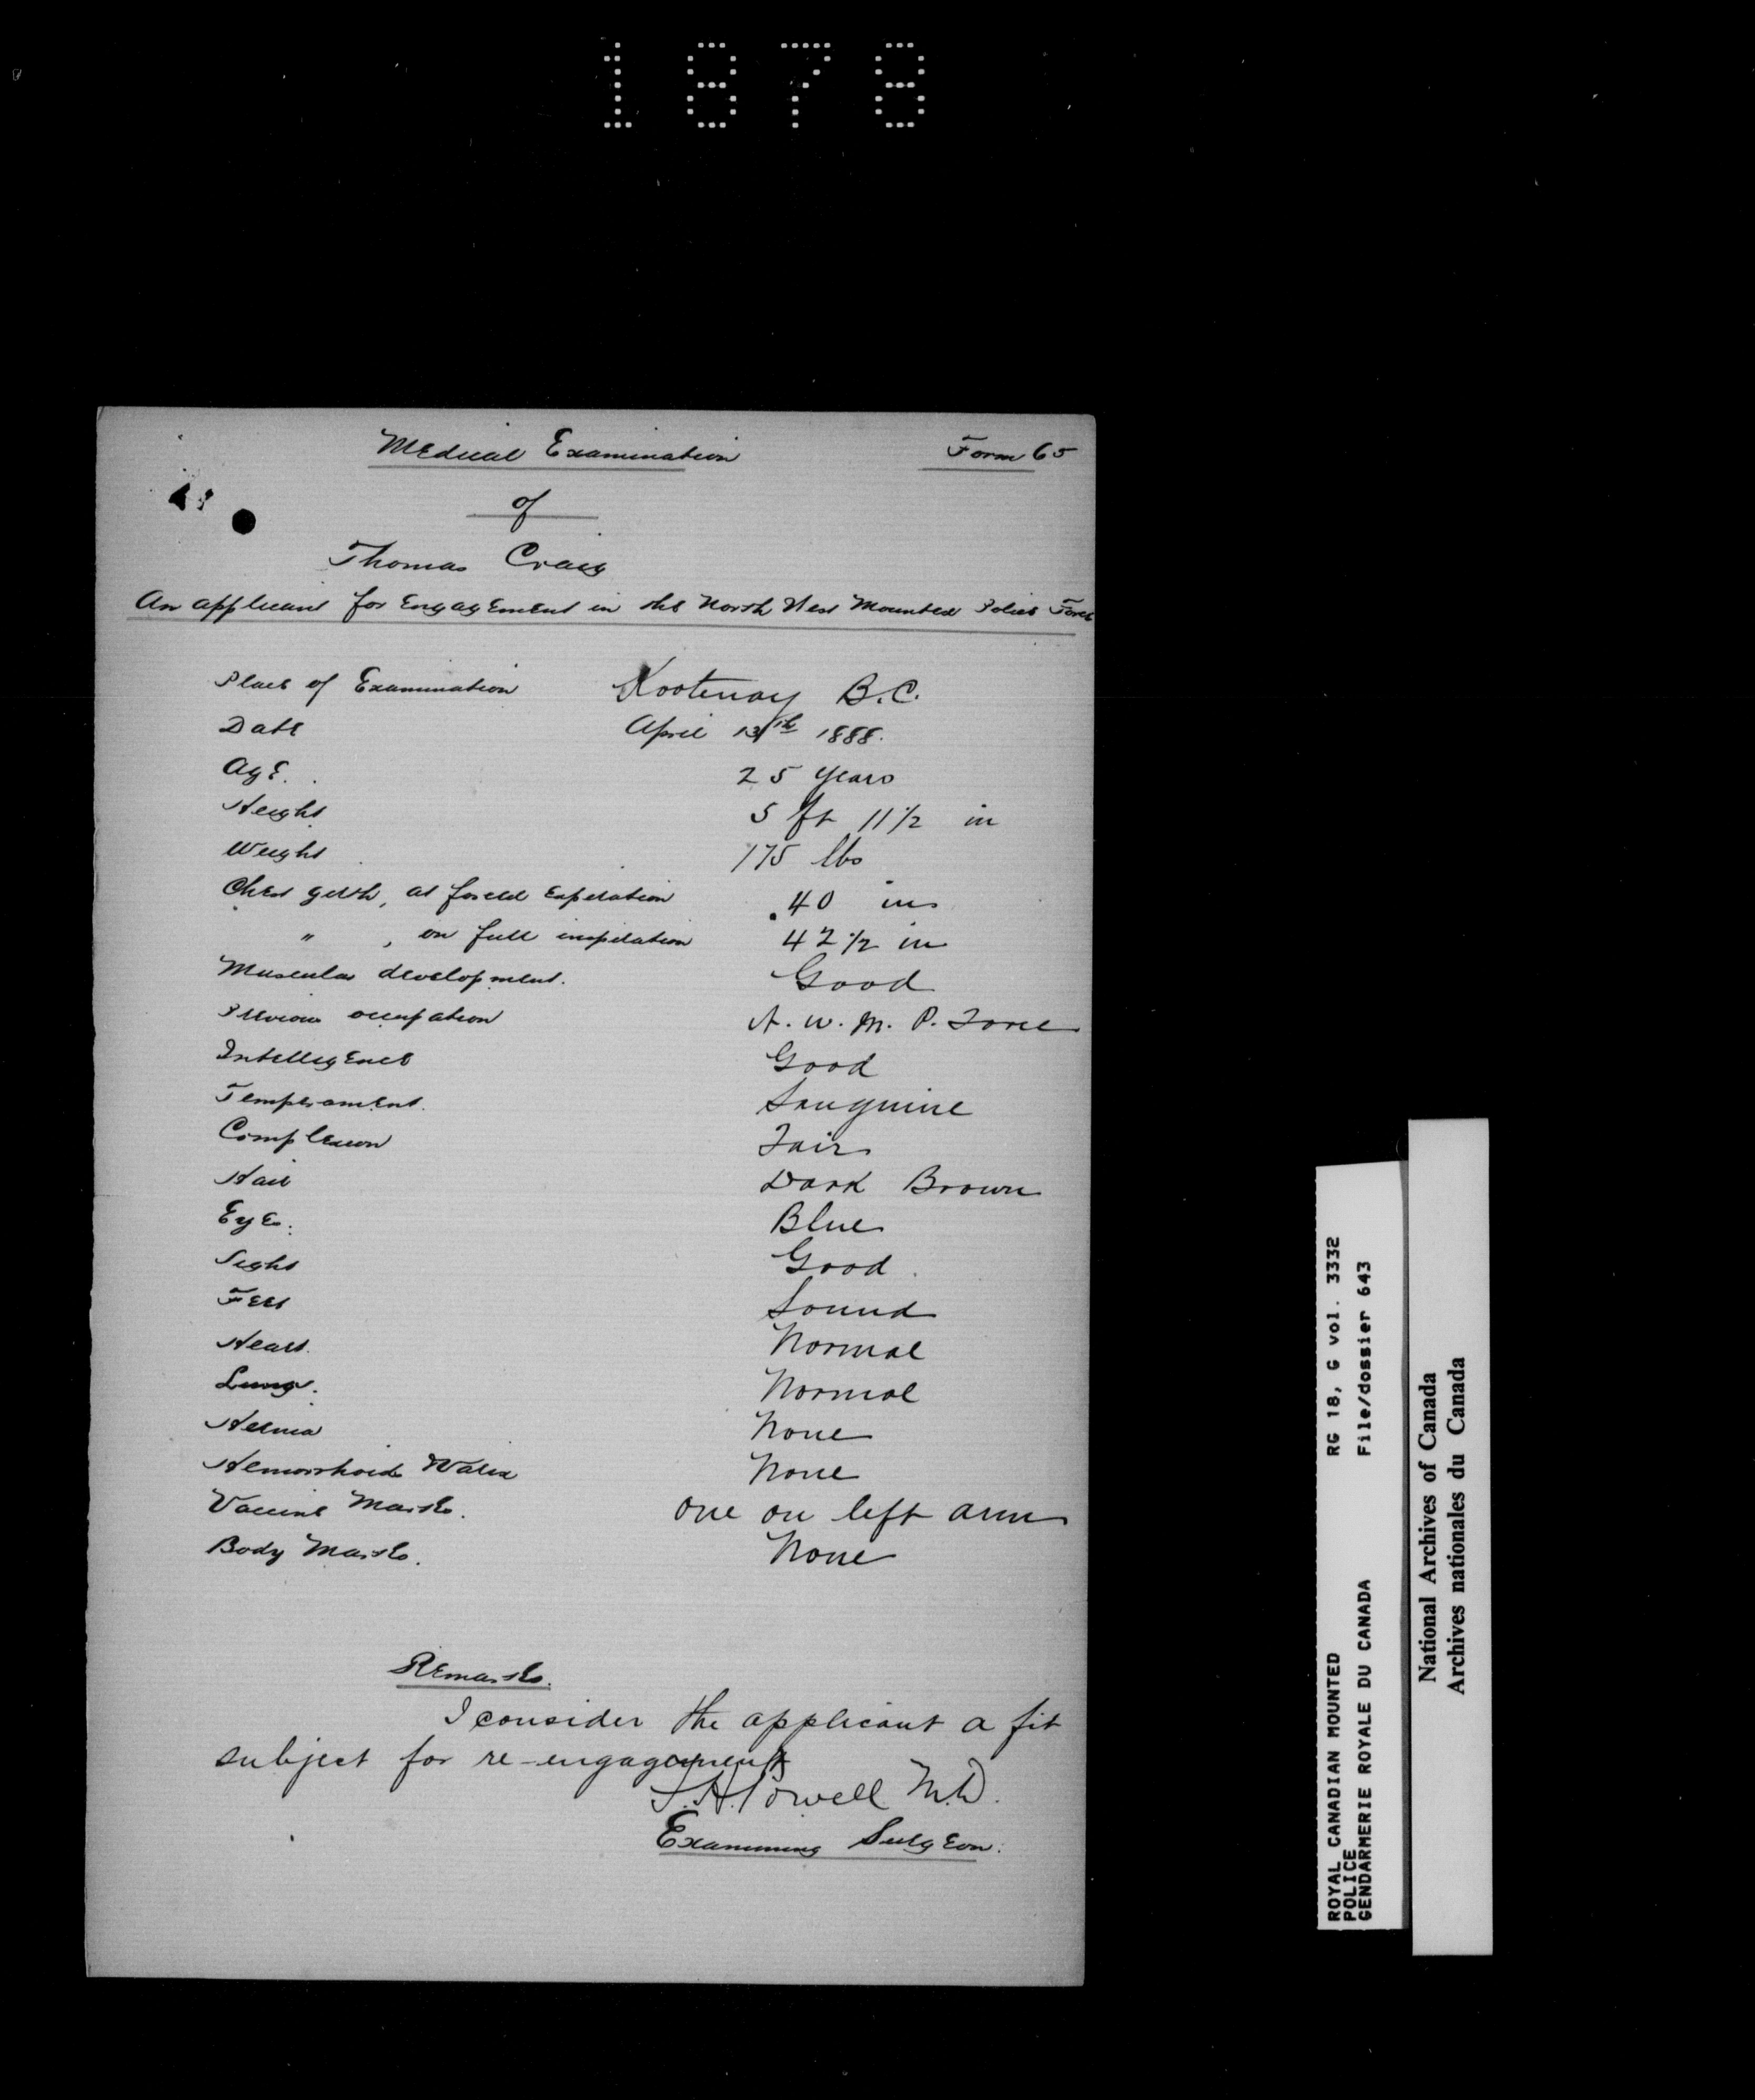 1878
Medical Examination
Form 65
of
Thomas Craig
An applicant for Engagement in the North West Mounted Police Force
Place of Examination Kootenay B.C.
Date April 13th 1888.
Age. 25 years
Height 5 ft 11 1/2 in
Weight 175 lbs
Chest girth, at forced Expiration 40 ins
" , on full inspiration 42 1/2 in
Muscular development. Good
Previous occupation N. W. M. P. Force
Intelligence Good
Temperament. Sanguine
Complexion Fair
Hair Dark Brown
Eyes. Blue
Sight Good
Feet Sound
Heart. Normal
Lungs. Normal
Hernia None
Hemorrhoids Varix None
Vaccine Marks. one on left arm
Body Marks. None
Remarks.
I consider the applicant a fit
subject for re-engagement
Powell M.D.
Examining Surgeon.
ROYAL CANADIAN MOUNTED RG 18, G vol. 3332
POLICE
GENDARMERIE ROYALE DU CANADA File/dossier 643
National Archives of Canada
Archives nationales du Canada